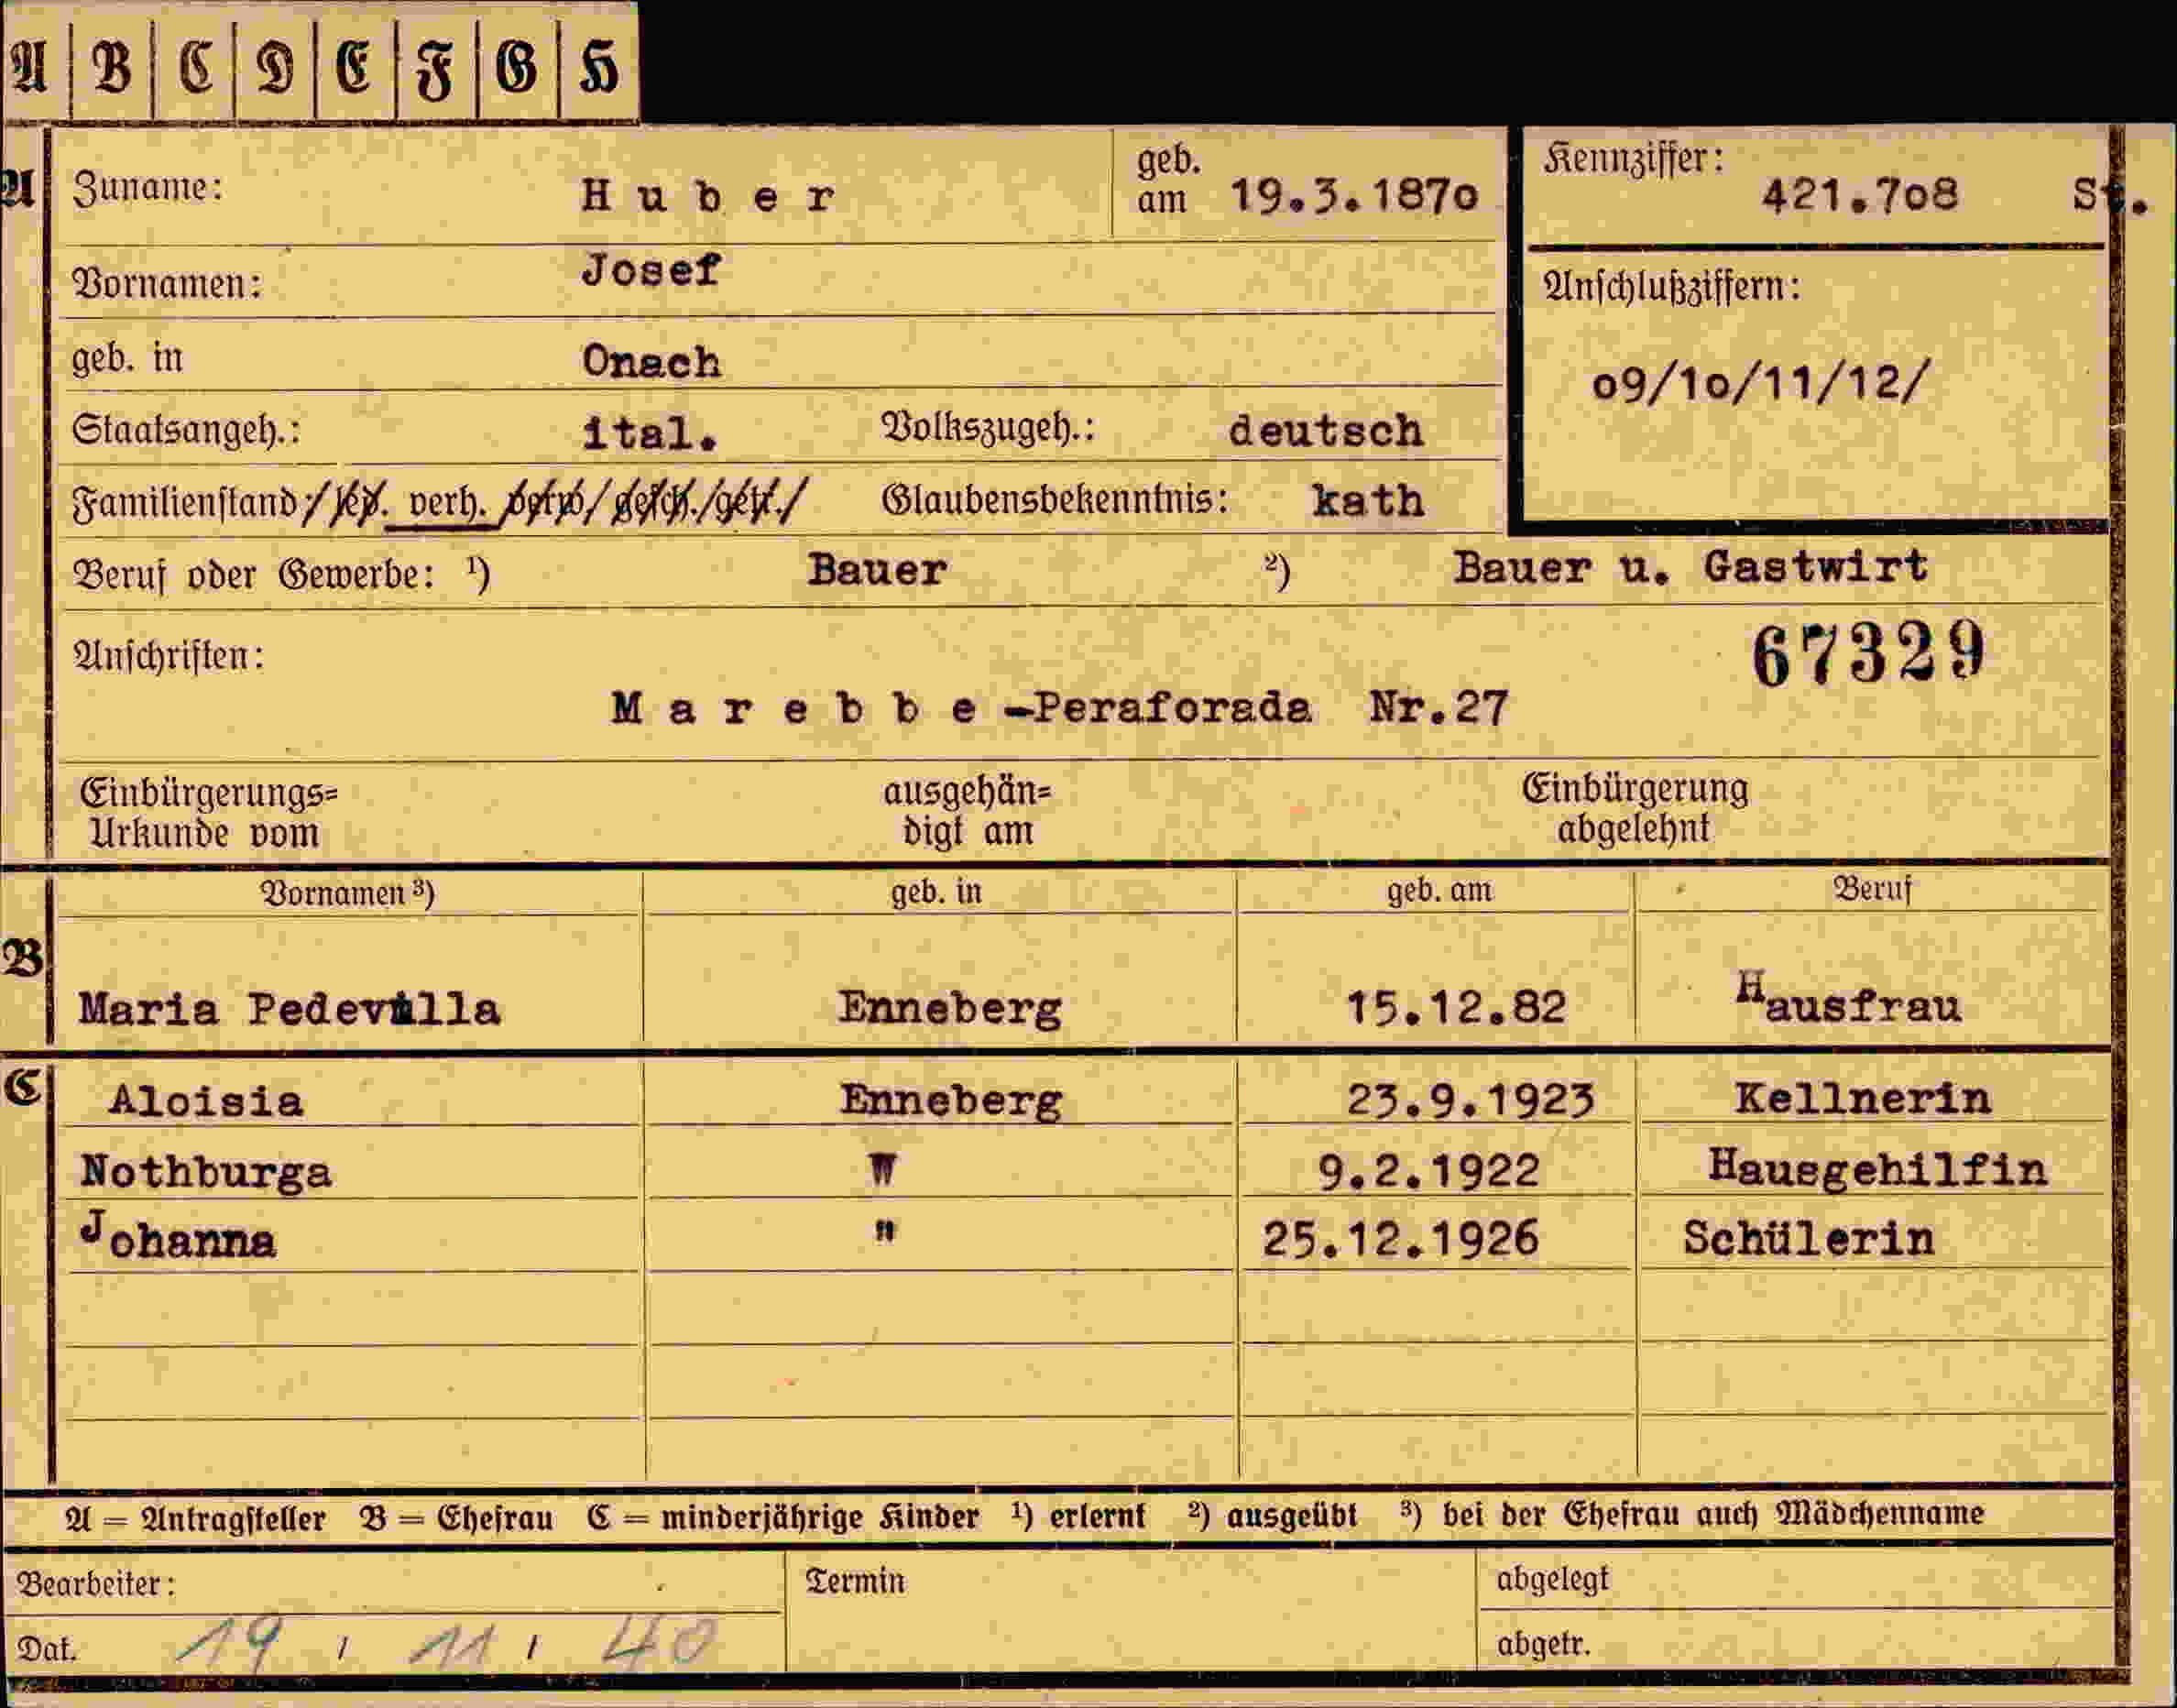 A B C D E F G H
A Zuname: Huber geb. am 19.3.1870 Kennziffer: 421.708 St.
Vornamen: Josef
Anschlußziffern:
geb. in Onach
09/10/11/12/
Staatsangeh.: ital. Volkszugeh.: deutsch
Familienstand: led. verh. verw. gesch. getr. Glaubensbekenntnis: kath
Beruf oder Gewerbe: ¹) Bauer ²) Bauer u. Gastwirt
Anschriften: 67329
Marebbe-Peraforada Nr.27
Einbürgerungs= ausgehän= Einbürgerung
Urkunde vom digt am abgelehnt
Vornamen ³) geb. in geb. am Beruf
B
Maria Pedevilla Enneberg 15.12.82 Hausfrau
C Aloisia Enneberg 23.9.1923 Kellnerin
Nothburga " 9.2.1922 Hausgehilfin
Johanna " 25.12.1926 Schülerin
A = Antragsteller B = Ehefrau C = minderjährige Kinder ¹) erlernt ²) ausgeübt ³) bei der Ehefrau auch Mädchenname
Bearbeiter: Termin abgelegt
Dat. 19 / 11 / 40 abgetr.